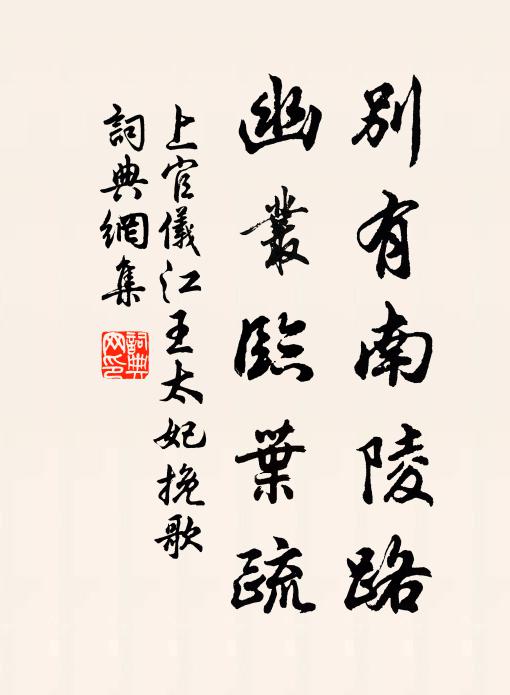 別有南陵路
幽叢臨葉疏
上官儀江王太妃挽歌
詞典網集
詞典
网印